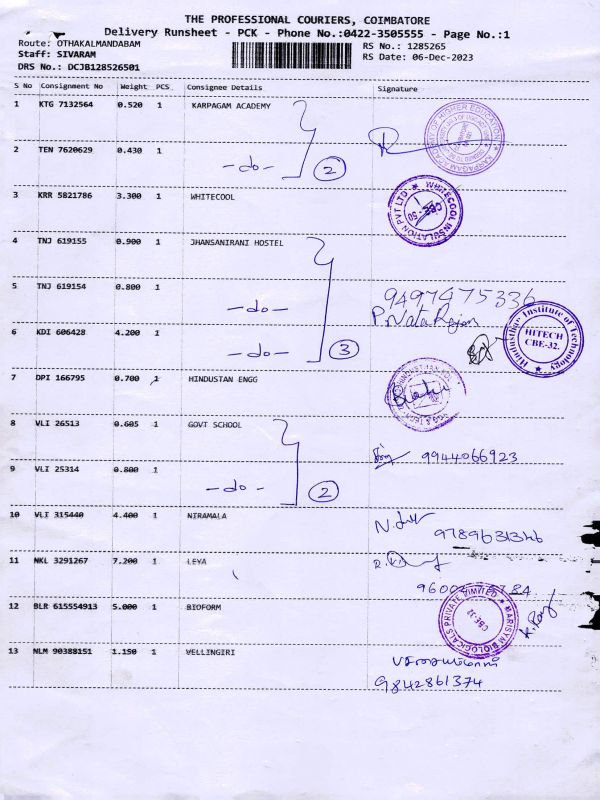 THE PROFESSIONAL COURIERS, COIMBATORE
Delivery Runsheet - PCK - Phone No.:0422-3505555 - Page No.:1
Route: OTHAKALMANDABAM
Staff: SIVARAM
DRS No.: DCJB128526501
RS No.: 1285265
RS Date: 06-Dec-2023
S No Consignment No Weight PCS Consignee Details Signature
1 KTG 7132564 0.520 1 KARPAGAM ACADEMY
2 TEN 7620629 0.430 1 -do- 2
3 KRR 5821786 3.300 1 WHITECOOL
WHITECOOL INSULATION PVT LTD
CBE-50
4 TNJ 619155 0.900 1 JHANSANIRANI HOSTEL
5 TNJ 619154 0.800 1 -do-
9497475336
P. Nata Rajan
6 KDI 606428 4.200 1 -do- 3
Hindusthan Institute of Technology
HITECH
CBE-32.
7 DPI 166795 0.700 1 HINDUSTAN ENGG
8 VLI 26513 0.605 1 GOVT SCHOOL
9944066923
9 VLI 25314 0.800 1 -do- 2
10 VLI 315440 4.400 1 NIRAMALA
11 NKL 3291267 7.200 1 LEYA
12 BLR 615554913 5.000 1 BIOFORM
MARISYM BIOLOGICALS PRIVATE LIMITED
CBE-32
13 NLM 90388151 1.150 1 VELLINGIRI
9842861374